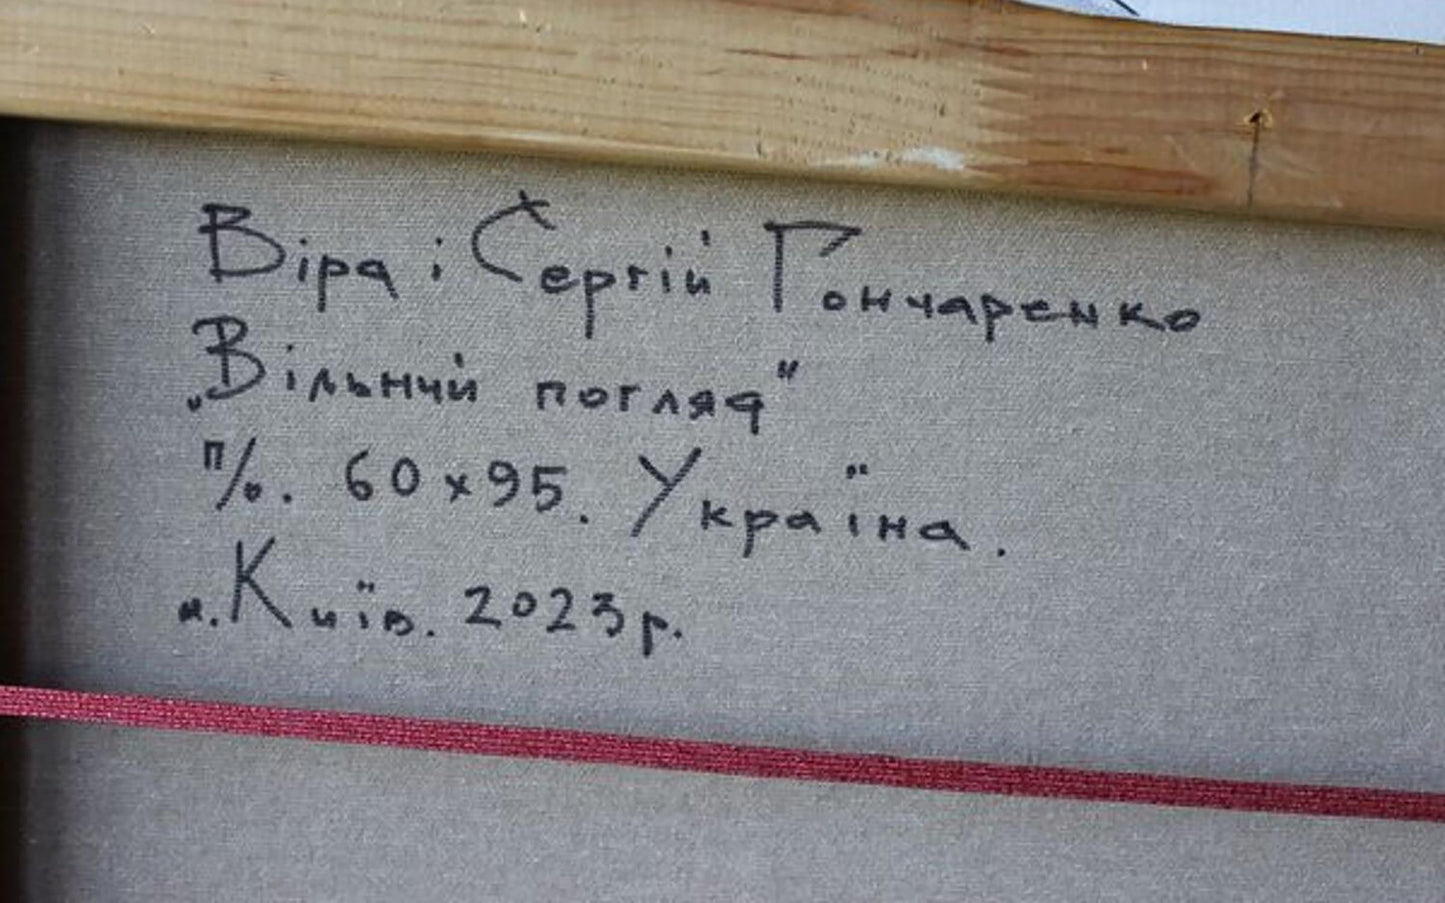 Віра і Сергій Гончаренко
„Вільний погляд"
п/о. 60х95. Україна.
м. Київ. 2023 р.